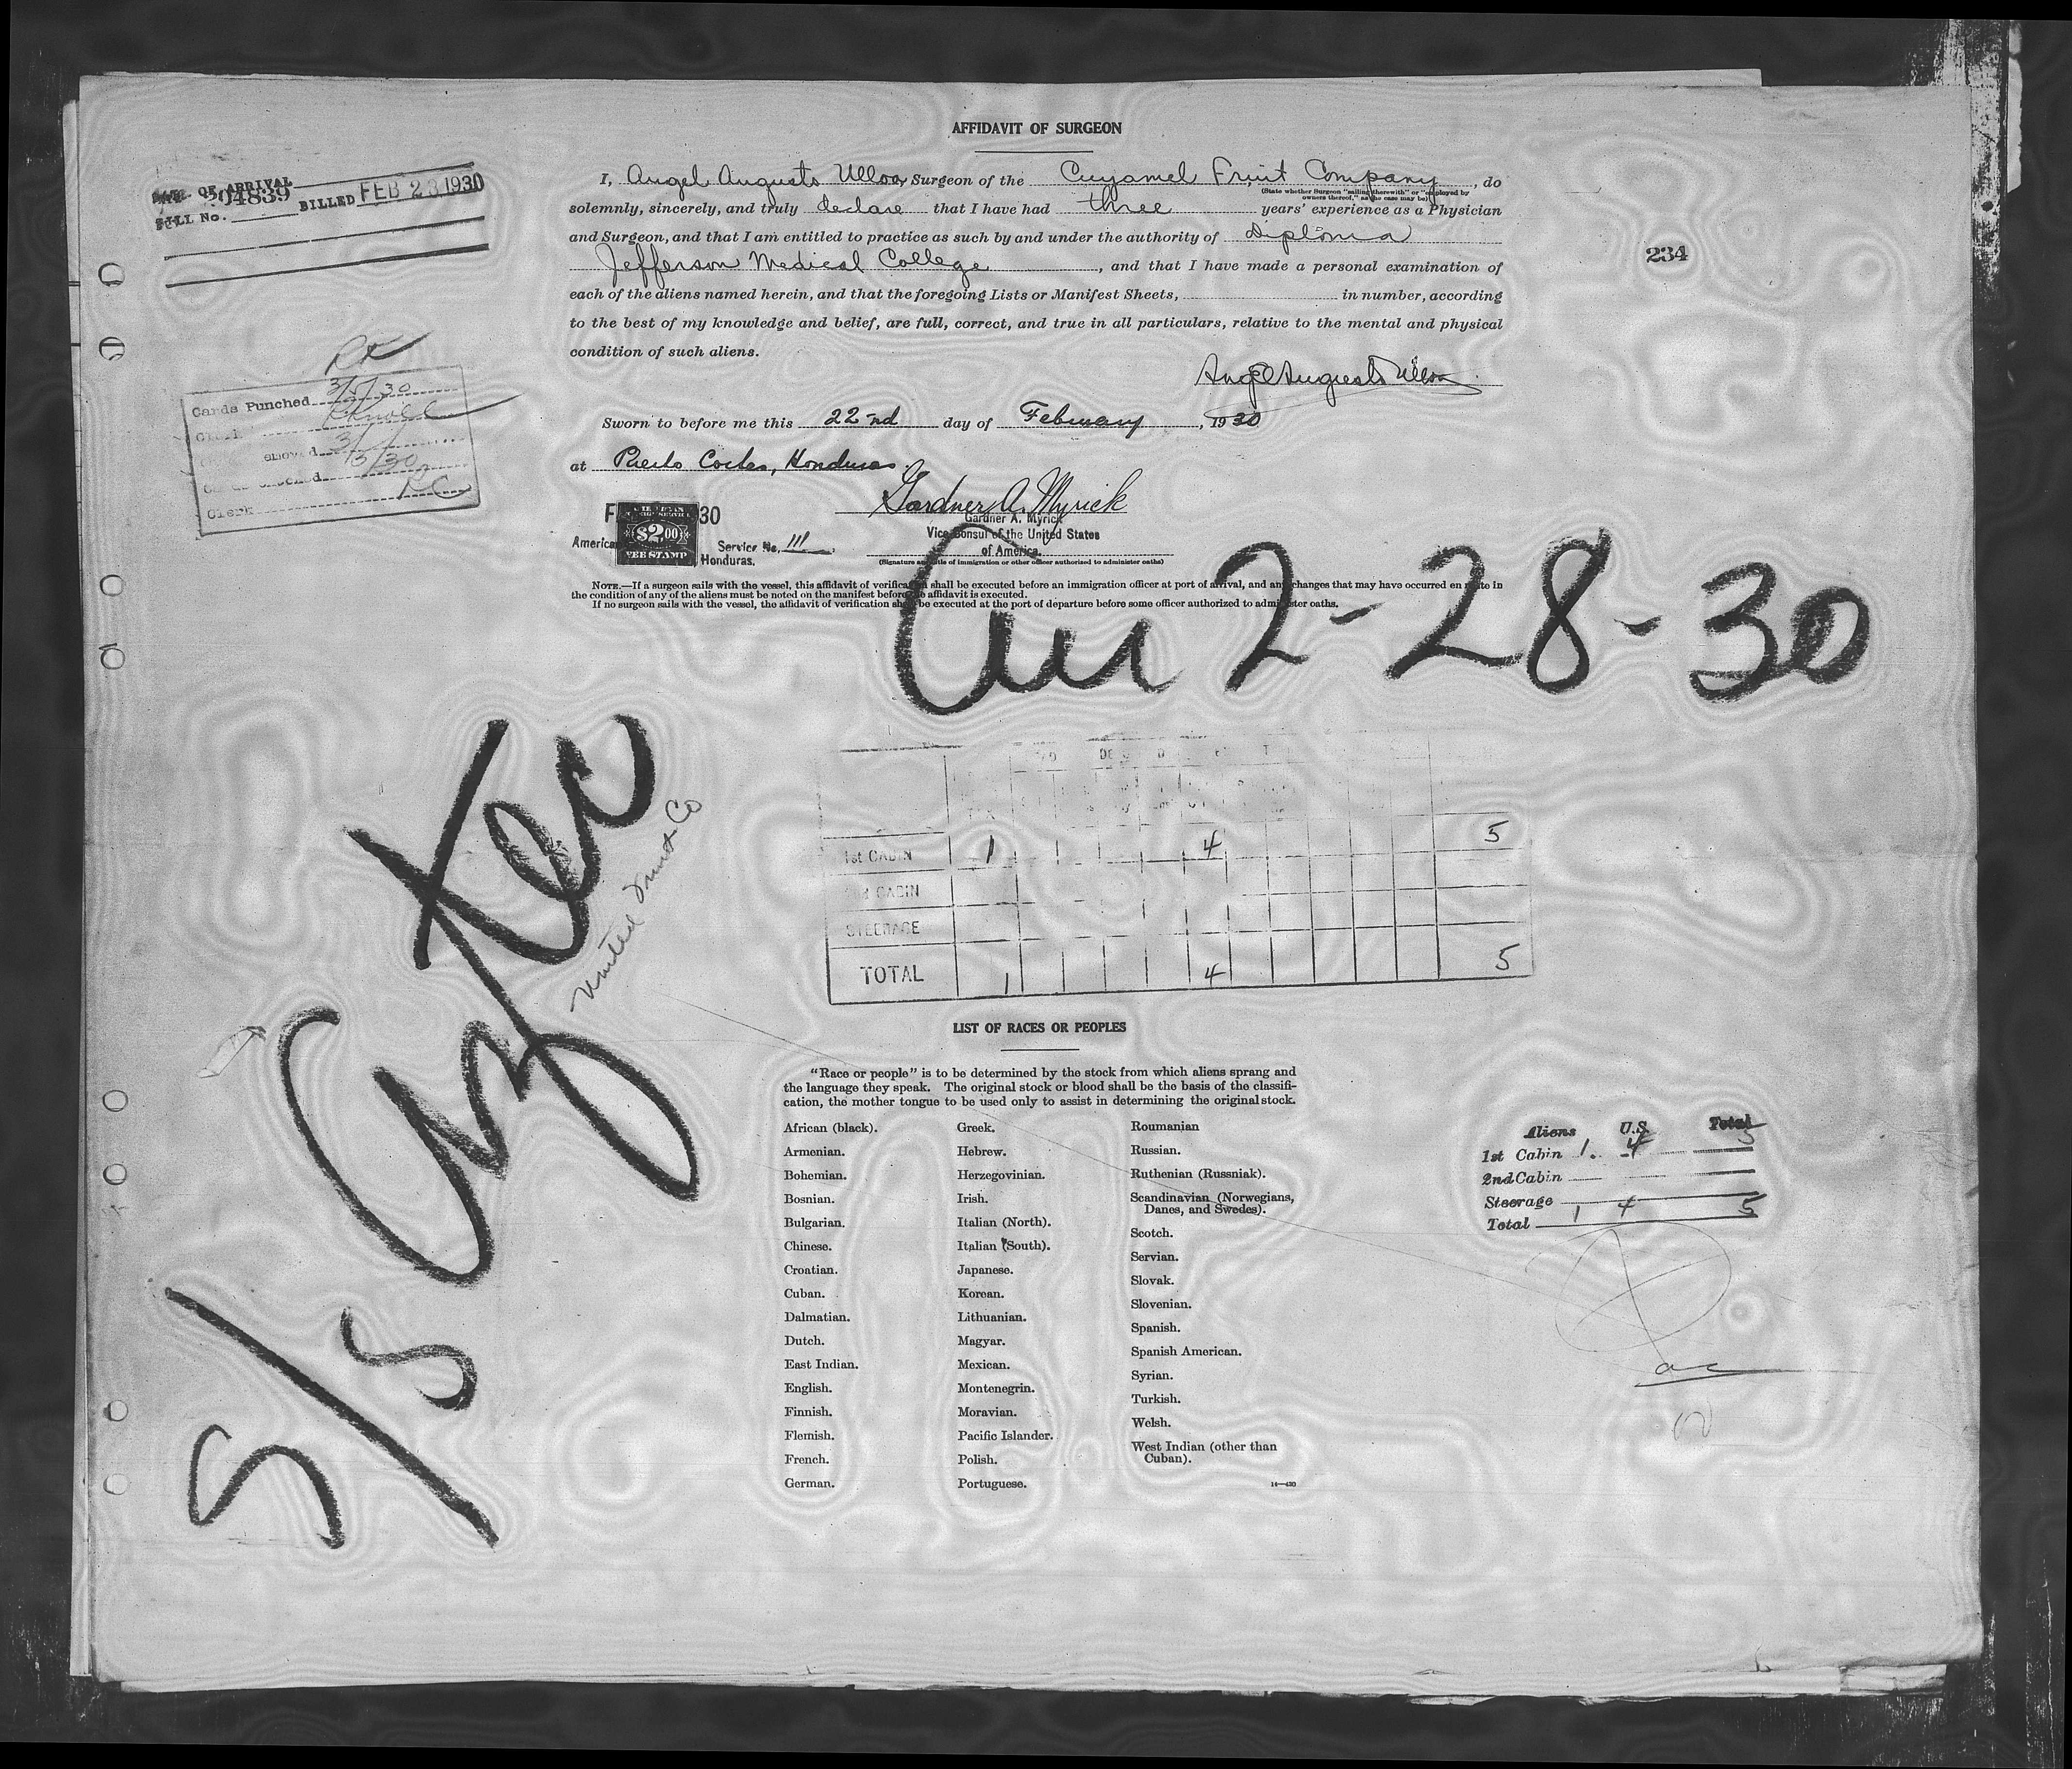 AFFIDAVIT OF SURGEON
I, Angel Augusto Ulloa, Surgeon of the Cuyamel Fruit Company, do
(State whether Surgeon "sailing therewith" or "employed by
owners thereof," as the case may be)
solemnly, sincerely, and truly declare that I have had three years' experience as a Physician
and Surgeon, and that I am entitled to practice as such by and under the authority of Diploma
Jefferson Medical College, and that I have made a personal examination of
each of the aliens named herein, and that the foregoing Lists or Manifest Sheets, in number, according
to the best of my knowledge and belief, are full, correct, and true in all particulars, relative to the mental and physical
condition of such aliens.
Angel Augusto Ulloa
Sworn to before me this 22nd day of February, 1930
at Puerto Cortes, Honduras.
Gardner A. Myrick
Gardner A. Myrick
Vice Consul of the United States
of America.
(Signature and title of immigration or other officer authorized to administer oaths)
F 30
$2.00
FEE STAMP
American Service No. 111
Honduras.
NOTE.—If a surgeon sails with the vessel, this affidavit of verification shall be executed before an immigration officer at port of arrival, and any changes that may have occurred en route in
the condition of any of the aliens must be noted on the manifest before the affidavit is executed.
If no surgeon sails with the vessel, the affidavit of verification shall be executed at the port of departure before some officer authorized to administer oaths.
DATE OF ARRIVAL
04839
BILL No. BILLED FEB 23 1930
234
RK
Cards Punched 3/5/30
Clerk RKnoll
Clerk RC
Arr 2-28-30
S/S Aztec
United Fruit Co
1st CABIN 1 4 5
2nd CABIN
STEERAGE
TOTAL 1 4 5
LIST OF RACES OR PEOPLES
"Race or people" is to be determined by the stock from which aliens sprang and
the language they speak. The original stock or blood shall be the basis of the classifi-
cation, the mother tongue to be used only to assist in determining the original stock.
African (black).
Armenian.
Bohemian.
Bosnian.
Bulgarian.
Chinese.
Croatian.
Cuban.
Dalmatian.
Dutch.
East Indian.
English.
Finnish.
Flemish.
French.
German.
Greek.
Hebrew.
Herzegovinian.
Irish.
Italian (North).
Italian (South).
Japanese.
Korean.
Lithuanian.
Magyar.
Mexican.
Montenegrin.
Moravian.
Pacific Islander.
Polish.
Portuguese.
Roumanian
Russian.
Ruthenian (Russniak).
Scandinavian (Norwegians,
Danes, and Swedes).
Scotch.
Servian.
Slovak.
Slovenian.
Spanish.
Spanish American.
Syrian.
Turkish.
Welsh.
West Indian (other than
Cuban).
14—430
Aliens U.S. Total
1st Cabin 1 4 5
2nd Cabin
Steerage
Total 1 4 5